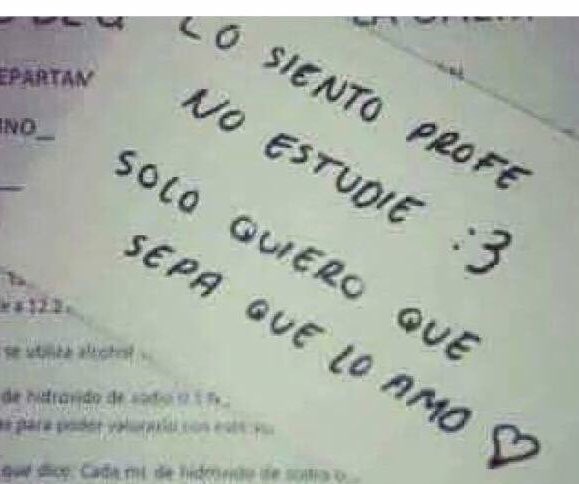 LO SIENTO PROFE
NO ESTUDIE :3
SOLO QUIERO QUE
SEPA QUE LO AMO ♡
EPARTAM
INO__
a 12.2
se utiliza alcohol
de hidróxido de sodio 0.1 N
para poder valorarlo con
que dice: Cada mL de hidróxido de sodio 0